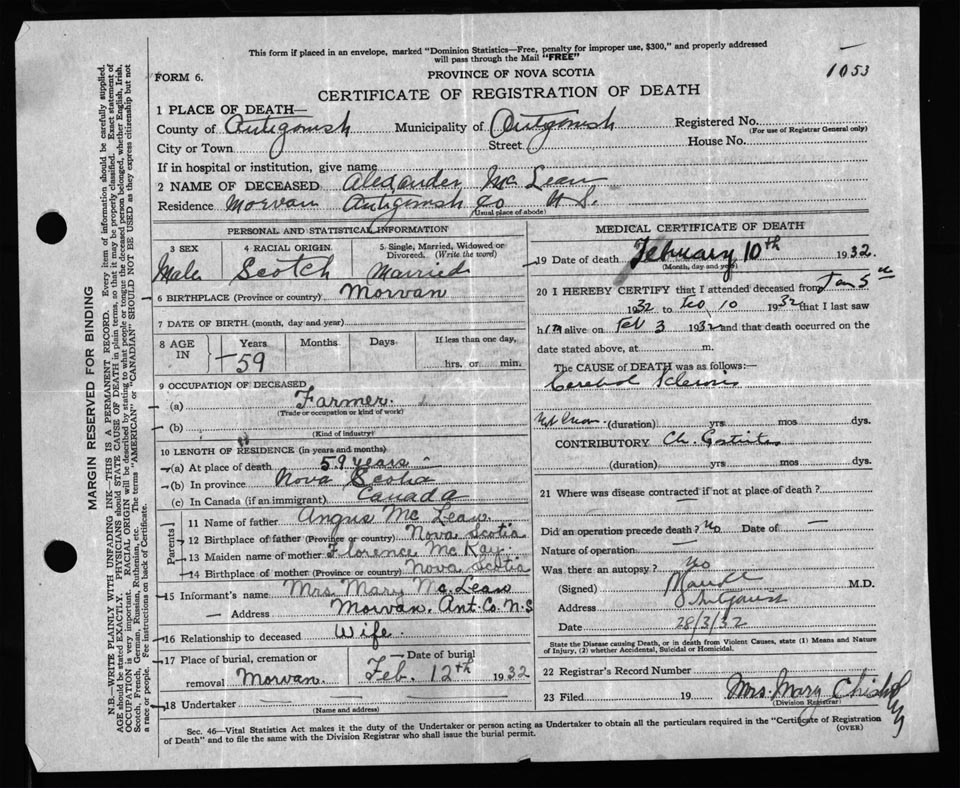 This form if placed in an envelope, marked "Dominion Statistics—Free, penalty for improper use, $300," and properly addressed
will pass through the Mail "FREE"
1053
FORM 6.
PROVINCE OF NOVA SCOTIA
CERTIFICATE OF REGISTRATION OF DEATH
1 PLACE OF DEATH—
County of Antigonish Municipality of Antigonish Registered No.
(For use of Registrar General only)
City or Town Street House No.
If in hospital or institution, give name
2 NAME OF DECEASED Alexander Mc Lean
Residence Morvan Antigonish Co N S.
(Usual place of abode)
PERSONAL AND STATISTICAL INFORMATION
3 SEX 4 RACIAL ORIGIN 5 Single, Married, Widowed or
Divorced. (Write the word)
Male Scotch Married
6 BIRTHPLACE (Province or country) Morvan
7 DATE OF BIRTH (month, day and year)
8 AGE IN Years Months Days If less than one day,
59 hrs. or min.
9 OCCUPATION OF DECEASED
(a) Farmer.
(Trade or occupation or kind of work)
(b)
(Kind of industry)
10 LENGTH OF RESIDENCE (in years and months)
(a) At place of death 59 years
(b) In province Nova Scotia
(c) In Canada (if an immigrant) Canada
Parents
11 Name of father Angus Mc Lean.
12 Birthplace of father (Province or country) Nova Scotia
13 Maiden name of mother Florence McKay.
14 Birthplace of mother (Province or country) Nova Scotia
15 Informant's name Mrs Mary McLean
Address Morvan. Ant. Co. N.S
16 Relationship to deceased Wife.
17 Place of burial, cremation or Date of burial
removal Morvan. Feb. 12th 1932
18 Undertaker
(Name and address)
MEDICAL CERTIFICATE OF DEATH
19 Date of death February 10th 1932.
(Month, day and year)
20 I HEREBY CERTIFY that I attended deceased from Jan 5
1932 to Feb 10 1932 that I last saw
him alive on Feb 3 1932 and that death occurred on the
date stated above, at m.
The CAUSE OF DEATH was as follows:—
Cerebral Sclerosis
(duration) yrs mos dys.
CONTRIBUTORY Ch.
(duration) yrs mos dys.
21 Where was disease contracted if not at place of death?
Did an operation precede death? No Date of —
Nature of operation —
Was there an autopsy? No
(Signed) M.D.
Address Antigonish
Date 28/3/32
State the Disease causing Death, or in death from Violent Causes, state (1) Means and Nature
of Injury, (2) whether Accidental, Suicidal or Homicidal.
22 Registrar's Record Number
23 Filed 19 Mrs. Mary Chisholm
(Division Registrar)
Sec. 46—Vital Statistics Act makes it the duty of the Undertaker or person acting as Undertaker to obtain all the particulars required in the "Certificate of Registration
of Death" and to file the same with the Division Registrar who shall issue the burial permit.
(OVER)
MARGIN RESERVED FOR BINDING
N.B.—WRITE PLAINLY WITH UNFADING INK—THIS IS A PERMANENT RECORD. Every item of information should be carefully supplied.
AGE should be stated EXACTLY. PHYSICIANS should STATE CAUSE OF DEATH in plain terms, so that it may be properly classified. Exact statement of
OCCUPATION is very important. RACIAL ORIGIN will be described by stating to what people or tongue the deceased person belonged, whether English, Irish,
Scotch, French, German, Russian, Ruthenian, etc. The terms "AMERICAN" or "CANADIAN" SHOULD NOT BE USED as they express citizenship but not
a race or people. Fee instructions on back of Certificate.